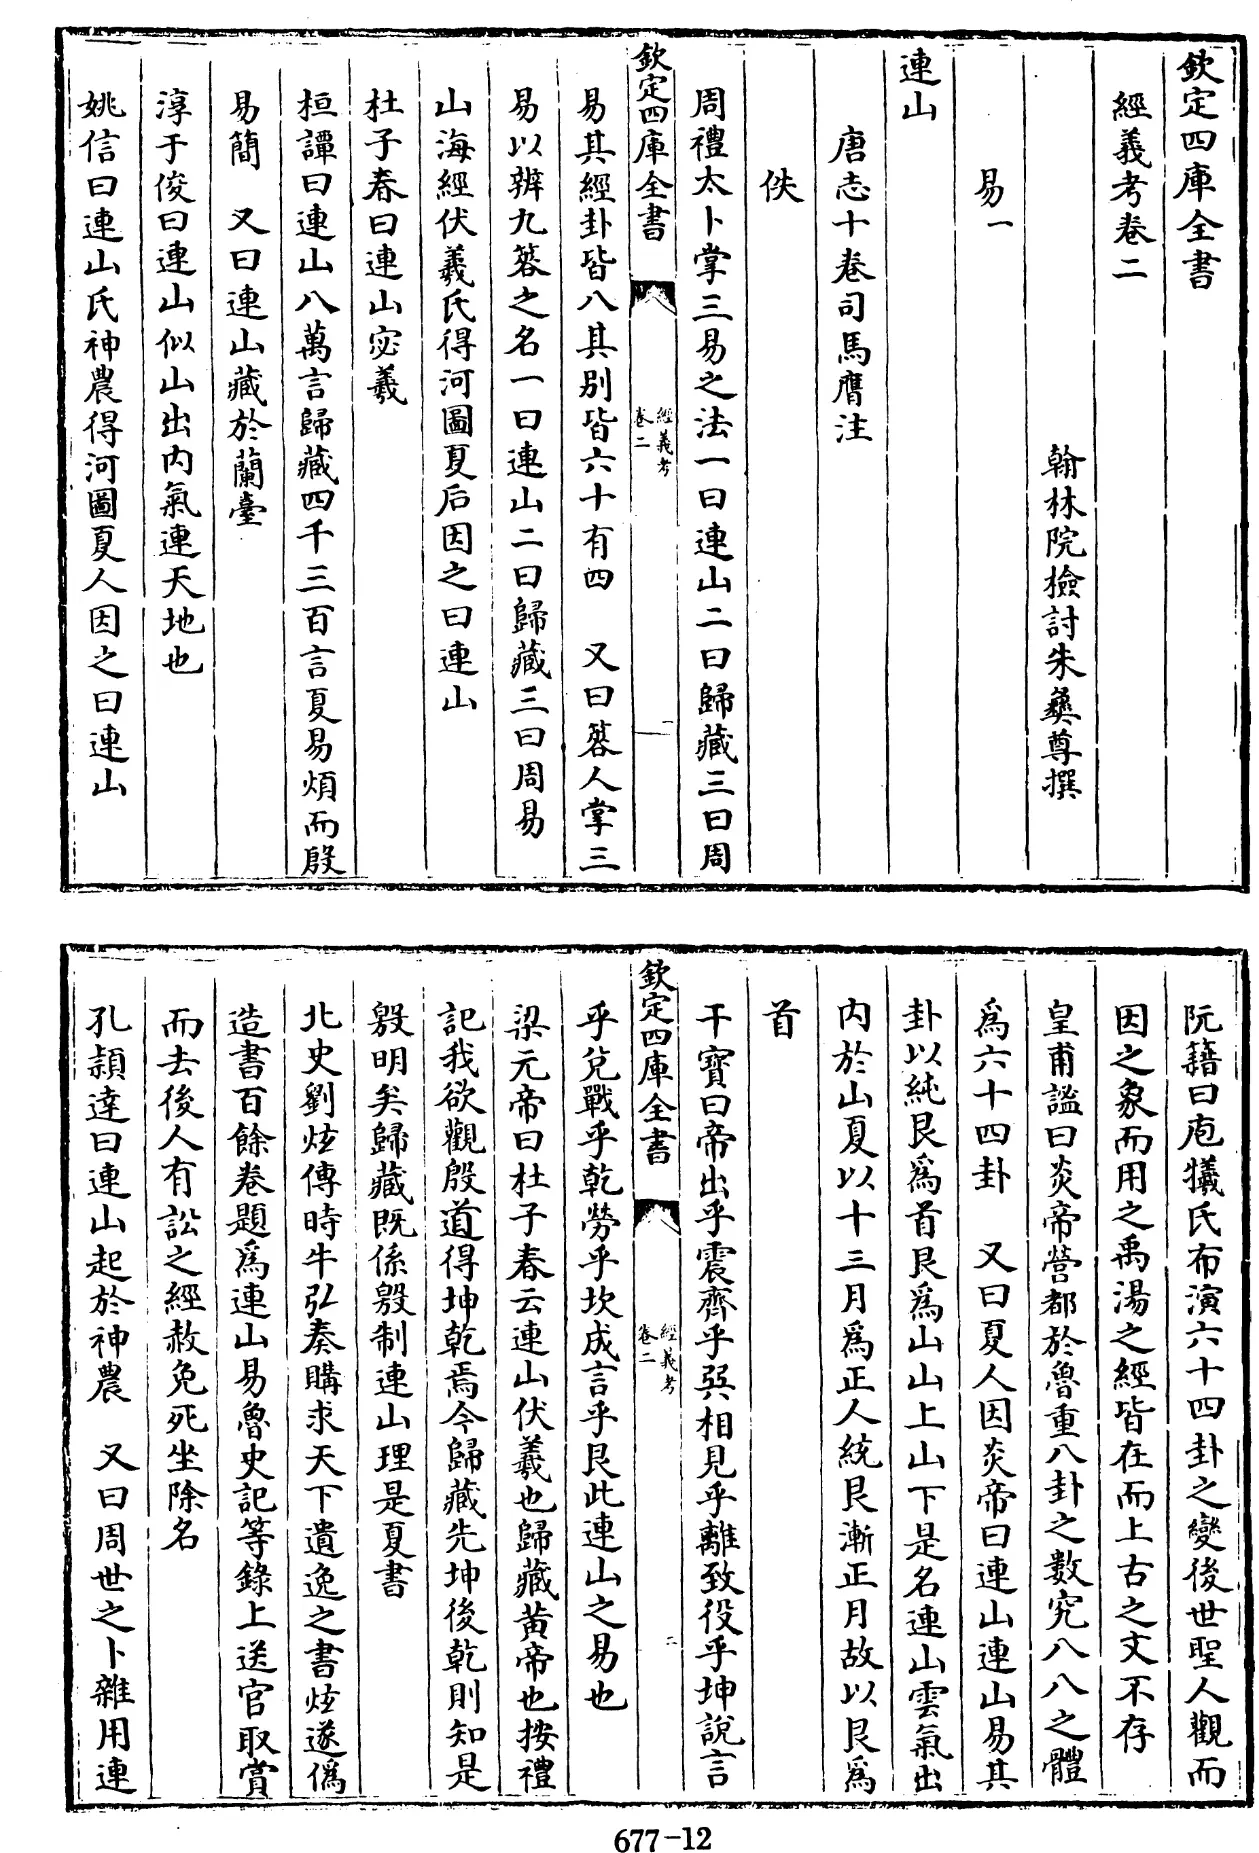 欽定四庫全書
經義考卷二
翰林院檢討朱彝尊撰
易一
連山
唐志十卷司馬膺注
佚
周禮太卜掌三易之法一曰連山二曰歸藏三曰周
欽定四庫全書
經義考
卷二
一
易其經卦皆八其別皆六十有四 又曰簭人掌三
易以辨九簭之名一曰連山二曰歸藏三曰周易
山海經伏羲氏得河圖夏后因之曰連山
杜子春曰連山宓羲
桓譚曰連山八萬言歸藏四千三百言夏易煩而殷
易簡 又曰連山藏於蘭臺
淳于俊曰連山似山出内氣連天地也
姚信曰連山氏神農得河圖夏人因之曰連山
阮籍曰庖犧氏布演六十四卦之變後世聖人觀而
因之象而用之禹湯之經皆在而上古之文不存
皇甫謐曰炎帝營都於魯重八卦之數究八八之體
爲六十四卦 又曰夏人因炎帝曰連山連山易其
卦以純艮爲首艮爲山山上山下是名連山雲氣出
内於山夏以十三月爲正人統艮漸正月故以艮爲
首
干寶曰帝出乎震齊乎巽相見乎離致役乎坤說言
欽定四庫全書
經義考
卷二
二
乎兌戰乎乾勞乎坎成言乎艮此連山之易也
梁元帝曰杜子春云連山伏羲也歸藏黃帝也按禮
記我欲觀殷道得坤乾焉今歸藏先坤後乾則知是
殷明矣歸藏既係殷制連山理是夏書
北史劉炫傳時牛弘奏購求天下遺逸之書炫遂僞
造書百餘卷題爲連山易魯史記等錄上送官取賞
而去後人有訟之經赦免死坐除名
孔穎達曰連山起於神農 又曰周世之卜雜用連
677-12